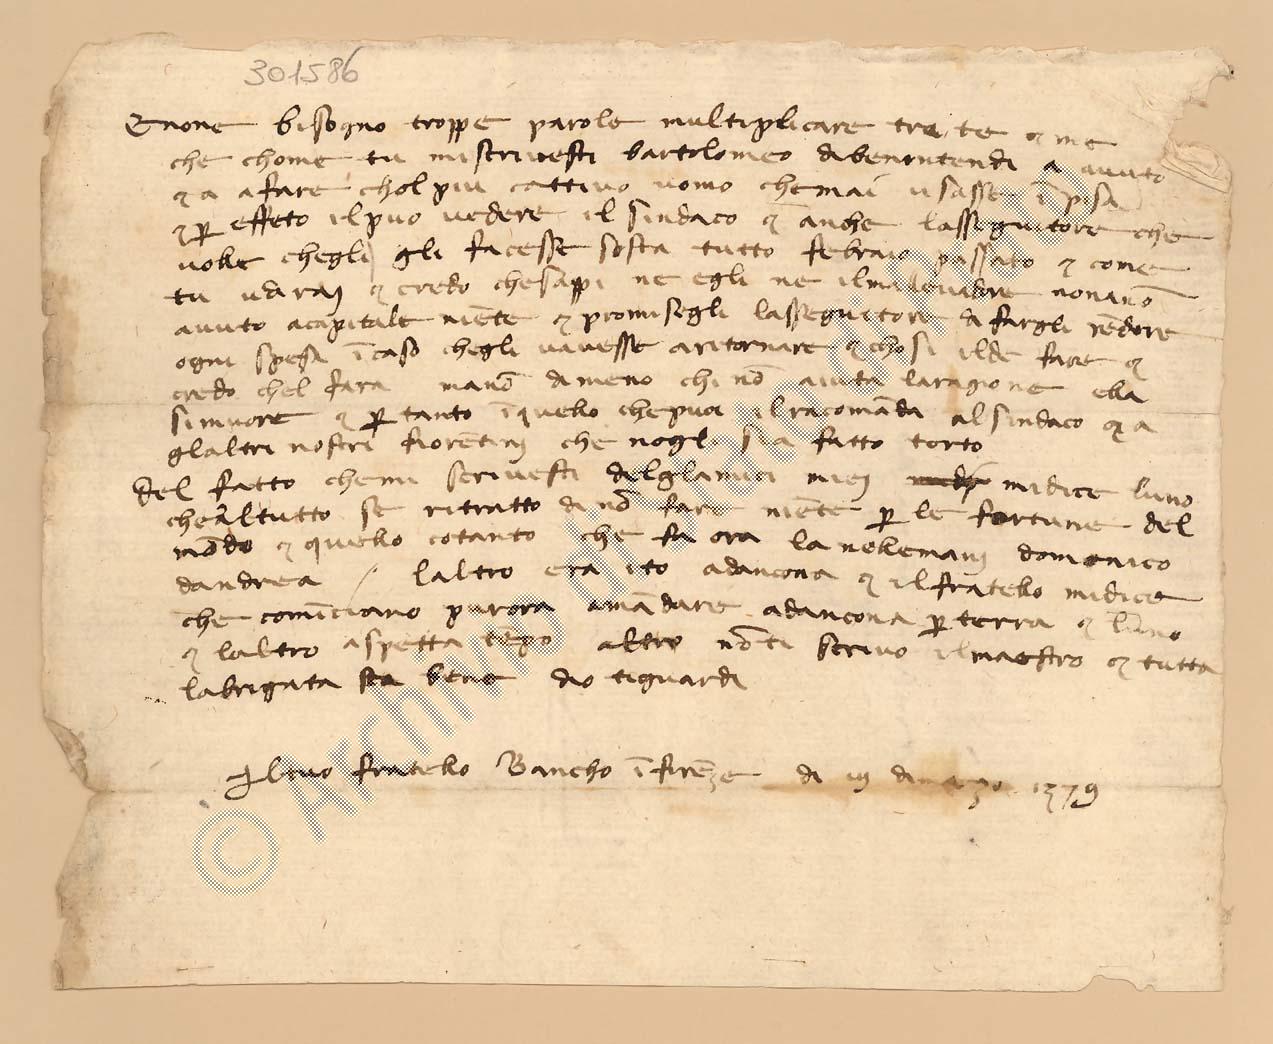 301586
Enone bisogno troppe parole multiplicare tra te e me
che chome tu miscrivesti bartolomeo dibenintendi a avuto
e a afare chol piu cattivo uomo chemai usasse ĩ pisa
e p effeto ilpuo vedere il sindaco e anche lasseguitore che
volle chegli gli facesse sosta tutto febraio passato e come
tu udirai e credo chesappi ne egli ne ilmallevadore nonanō
avuto acapitale niēte e promisegli lasseguitore di fargli rēdere
ogni spesa ĩcaso chegli vavesse aritornare e chosi ilde fare e
credo chel fara manō dimeno chi nō aiuta laragione ella
simuore e p tanto ĩquello chepuoi ilracomāda alsindaco e a
glaltri nostri fiorētinj che nogli sia fatto torto
del fatto chemi scrivesti delglamici miej midice luno
che altutto se ritratto di nō fare niēte p le fortune del
mōdo e quello cotanto che fa ora la nellemanj domenico
dandrea / laltro era ito adancona e ilfratello midice
che comĩciano purora amādare adancona p terra e luno
e laltro aspetta tēpo altro nōti scrivo ilmaestro e tutta
labrigata sta bene dio tiguardi
Iltuo fratello Bancho ĩ firēze di iij dimarzo 1379
© Archivio di Stato di Prato